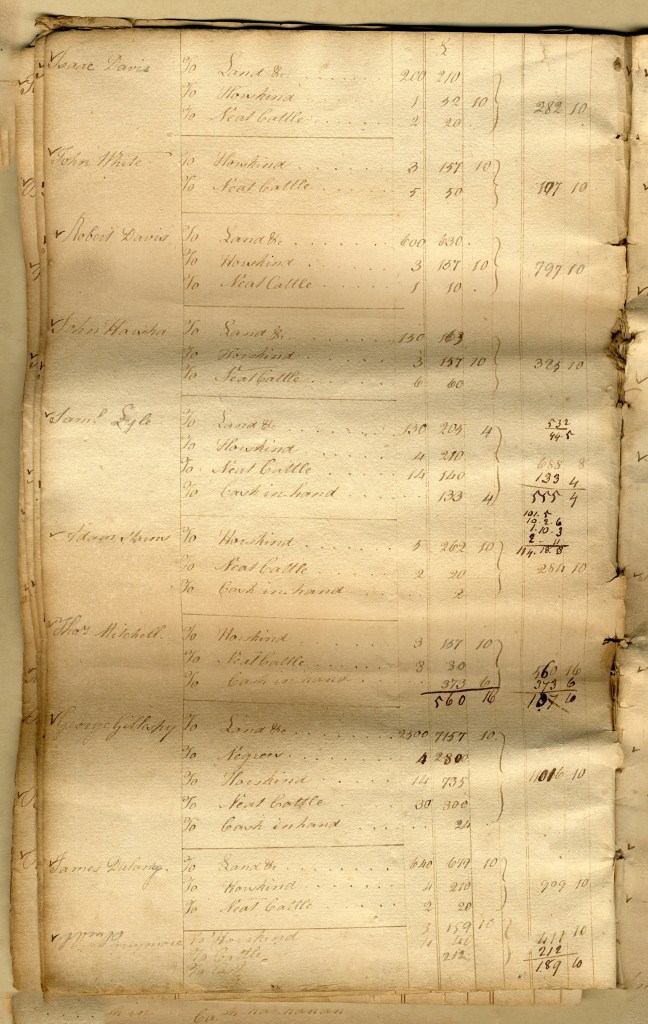 £
Isaac Davis To Land &c 200 210
To Horskind 1 52 10 282 10
To Neat Cattle 2 20
John White To Horskind 3 157 10
To Neat Cattle 5 50 10
Robert Davis To Land &c 600 630
To Horskind 3 157 10 797 10
To Neat Cattle 1 10
John To Land &c 150 163
To Horskind 3 157 10 10
To Neat Cattle 6 60
Saml Lyle To Land &c 150 205 4
To Horskind 4 210
To Neat Cattle 14 140 8
133 4
To Cash in hand 133 4 555 4
Adam To Horskind 5 262 10
To Neat Cattle 2 20 284 10
To Cash in hand 2
Thos Mitchell To Horskind 3 157 10
To Neat Cattle 30 560 16
To Cash in hand 373 6 373 6
560 16
George Gillespy To Land &c 7157 10
To Negroes 4 2800
To Horskind 14 735 10
To Neat Cattle 30 300
To Cash in hand 24
James To Land &c 640 679 10
To Horskind 4 210 909 10
To Neat Cattle 2 20
To Horskind 3 159 10
To Cattle
212 212
189 6